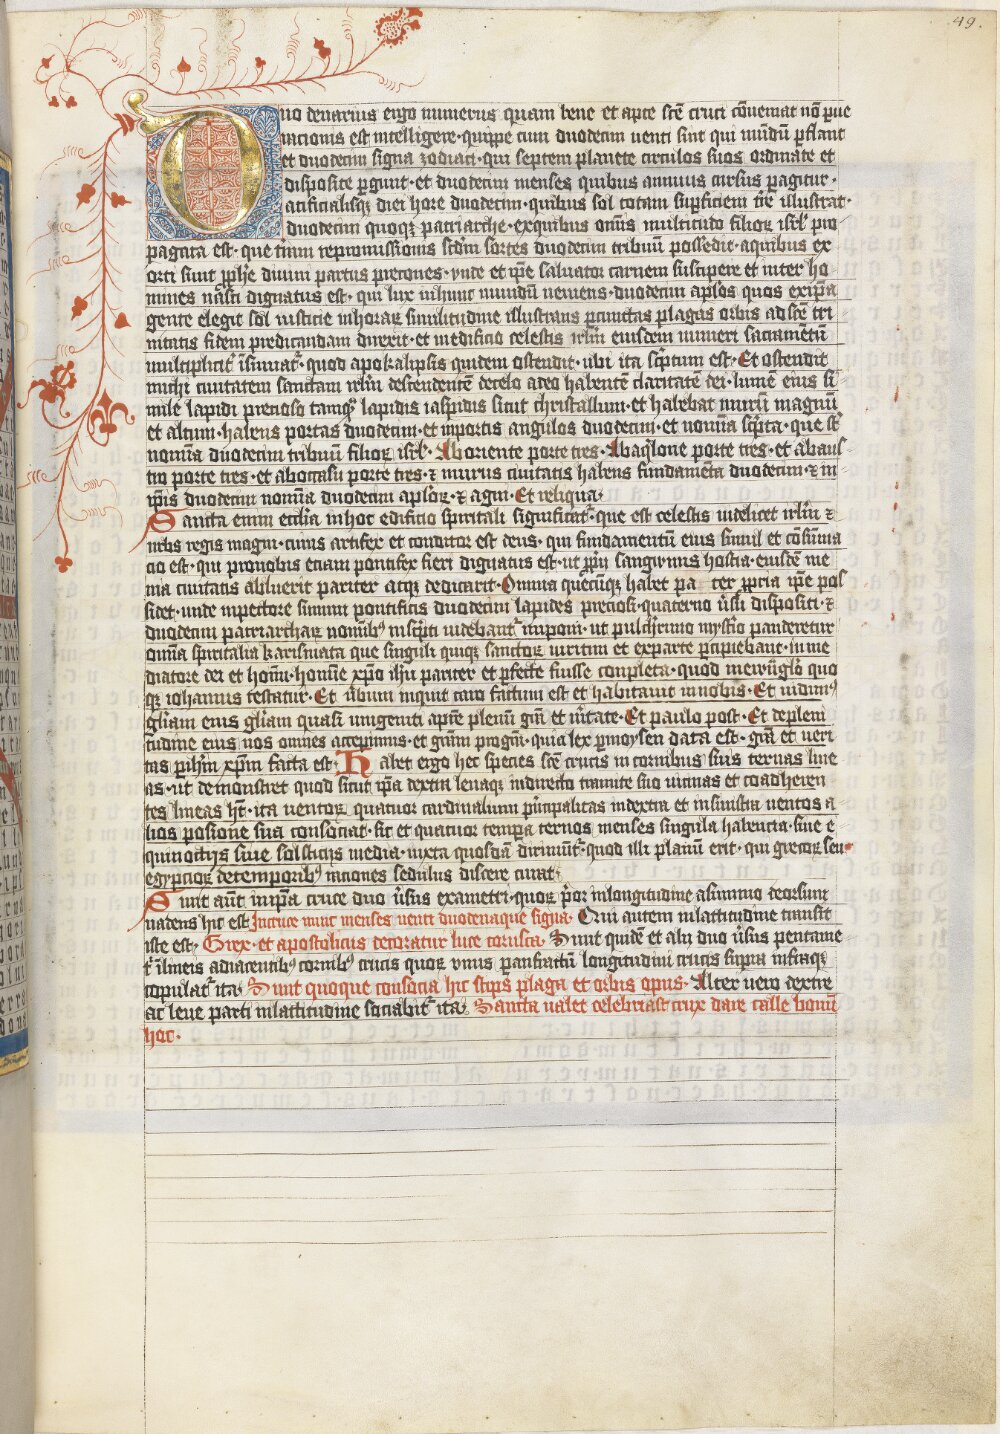 49.
Duo denarius ergo numerus quam bene et apte sc̄e cruci cōueniat nō pue
rationis est intelligere · quippe cum duodecim uenti sint qui mūdū ꝑflant
et duodecim signa zodiaci · qui septem planete circulos suos ordinate et
disposite ꝑgunt · et duodecim menses quibus annuus cursus ꝑagitur ·
artificialisqꝫ diei hore duodecim · quibus sol totam suꝑficiem tr̄e illustrat ·
duodecim quoqꝫ patriarche · exquibus om̄is multitudo filioꝝ isrl̄ pro
pagata est · que etiam repromissionis scd̄m sortes duodecim tribuū possedit · aquibus ex
orti sunt ꝓph̄e diuini partus precones · vnde et ip̄e saluator carnem suscipere et inter ho
mines nasci dignatus est · qui lux inhunc mundū ueniens · duodecim apl̄os quos exip̄a
gente elegit sol iusticie inhoraꝝ similitudine illustrans ꝑcunctas plagas orbis adsc̄e tri
nitatis fidem predicandam direxit · et inedificio celestis irl̄m eiusdem numeri sacramētū
multiplicit᷑ īsinuat᷑ · quod apokalipsis quidem ostendit · ubi ita sc̄ptum est · Et ostendit
michi ciuitatem sanctam irl̄m descendentē decelo adeo habentē claritatē dei · lumē eius si
mile lapidi precioso tamqꝫ lapidis iaspidis sicut christallum · et habebat murū magnū
et altum · habens portas duodecim · et inportis angulos duodecim · et nomīa sc̄pta · que st̄
nomīa duodecim tribuū filioꝝ isrl̄ · Aboriente porte tres · Abaqͥlone porte tres · et abaus
tro porte tres · et aboccasu porte tres · ⁊ murus ciuitatis habens fundamēta duodecim · ⁊ in
ip̄is duodecim nomīa duodecim apl̄oꝝ · ⁊ agni · Et reliqua ·
Sancta enim eccl̄ia inhoc edificio spiritali significat᷑ · que est celestis uidelicet irl̄m ⁊
urbs regis magni · cuius artifex et conditor est deus · qui fundamentū eius simul et cōsūma
cio est · qui pronobis etiam pontifex fieri dignatus est · ut ꝑpͥi sanguinis hostia · eiusdē me
nia ciuitatis ablueret pariter atqꝫ dedicaret · Omnia quecūqꝫ habet pa ter ꝓpria ip̄e pos
sidet · unde inpectore summi pontificis duodecim lapides preciosi · quaterno ūsu dispositi · ⁊
duodecim patriarchaꝝ nomībꝰ inscͥpti uidebant᷑ imponi · ut pulchrimo myst̄io panderetur
omīa spiritalia karismata que singuli quiqꝫ sanctoꝝ uiritim et exparte ꝑcipiebant · in me
diatore dei et homī · homīe xp̄o ih̄u pariter et ꝑfecte fuisse completa · quod meiruglō quo
qꝫ iohannis testatur · Et ūbum inquit caro factum est et habitauit innobis · Et uidimꝰ
gl̄iam eius gl̄iam quasi unigeniti apr̄e plenū grā et ūitate · Et paulo post · Et depleni
tudine eius nos omnes accepimus · et grām progrā · quia lex ꝑmoysen data est · grā et ueri
tas ꝑih̄m xp̄m facta est · Habet ergo hec species sc̄e crucis in cornibus suis ternas line
as · ut demonstret quod sicut ip̄a dextra leuaqꝫ indirecto tramite suo uicinas et coadheren
tes lineas h̄t · ita uentoꝝ quatuor cardinalium pͥncipalitas indextra et insinistra uentos a
lios posione sua consociat · sic et quatuor tempa ternos menses singula habentia · siue e
quinoctijs siue solsticijs media · iuxta quosdā dirimūt᷑ · quod illi planū erit · qui grecoꝝ seu
egypcioꝝ detemporibꝰ rationes sedulus discere curat ·
Sunt aūt inip̄a cruce duo ūsus exametri · quoꝝ pͥor inlongitudine asummo deorsum
uadens hic est Incruce nunc menses uenti duodenaque signa · Qui autem inlatitudine transit
iste est · Grex · et apostolicus decoratur luce corusca · Sunt quidē et alij duo ūsus pentame
tͥ īlineis adiacentibꝰ cornibꝰ crucis quoꝝ vnus ꝑanfractū longitudini crucis supra infraqꝫ
copulat᷑ ita · Sunt quoque consocia hic stips plaga et orbis opus · Alter uero dextre
ac leue parti inlatitudine sociabit᷑ ita · Sancta ualet celebriast crux dare calle bonū
hoc ·